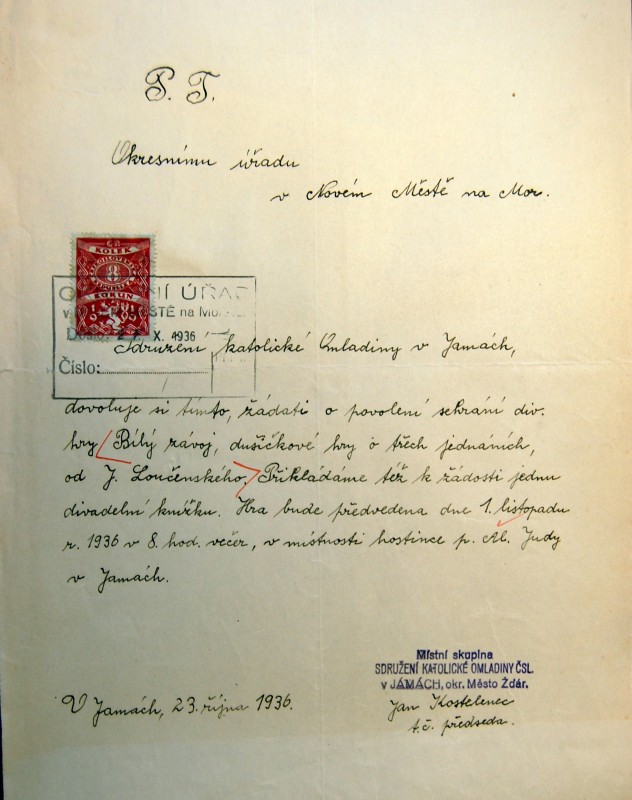 P. T.
Okresnímu úřadu
v Novém Městě na Mor.
KOLEK
8
KORUN
OKRESNÍ ÚŘAD
MĚSTĚ na Mor.
X. 1936
Číslo:
Sdružení katolické Omladiny v Jamách,
dovoluje si tímto, žádati o povolení sehrání div.
hry Bílý závoj, dušičkové hry o třech jednáních,
od J. Loučenského. Přikládáme též k žádosti jednu
divadelní knížku. Hra bude předvedena dne 1. listopadu
r. 1936 v 8. hod. večer, v místnosti hostince p. Al. Judy
v Jamách.
Místní skupina
SDRUŽENÍ KATOLICKÉ OMLADINY ČSL.
v JÁMÁCH, okr. Město Žďár.
V Jamách, 23. října 1936.
Jan Kostelenec
t. č. předseda.